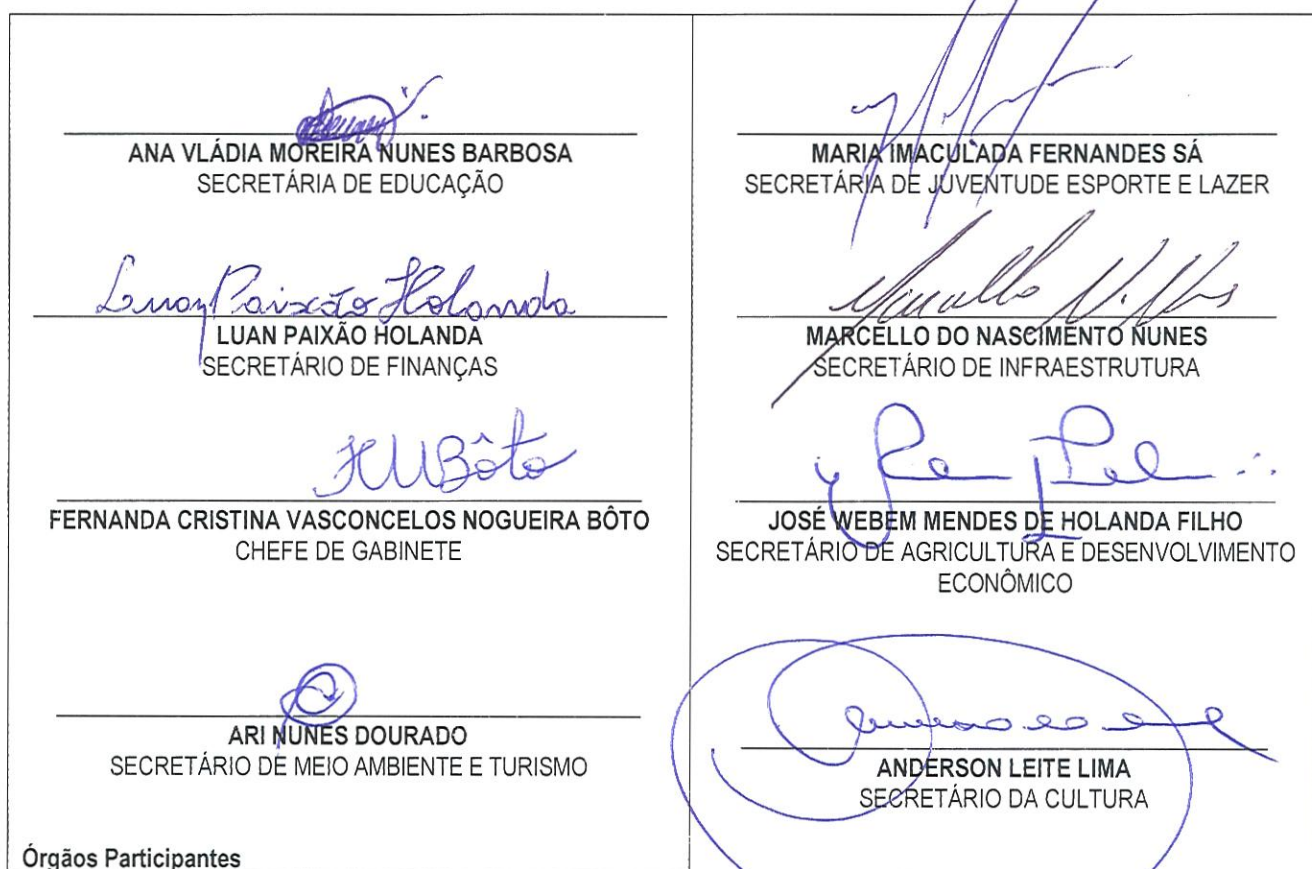 ANA VLÁDIA MOREIRA NUNES BARBOSA
SECRETÁRIA DE EDUCAÇÃO
Luan Paixão Holanda
LUAN PAIXÃO HOLANDA
SECRETÁRIO DE FINANÇAS
Bôto
FERNANDA CRISTINA VASCONCELOS NOGUEIRA BÔTO
CHEFE DE GABINETE
ARI NUNES DOURADO
SECRETÁRIO DE MEIO AMBIENTE E TURISMO
Órgãos Participantes
MARIA IMACULADA FERNANDES SÁ
SECRETÁRIA DE JUVENTUDE ESPORTE E LAZER
MARCELLO DO NASCIMENTO NUNES
SECRETÁRIO DE INFRAESTRUTURA
JOSÉ WEBEM MENDES DE HOLANDA FILHO
SECRETÁRIO DE AGRICULTURA E DESENVOLVIMENTO
ECONÔMICO
ANDERSON LEITE LIMA
SECRETÁRIO DA CULTURA